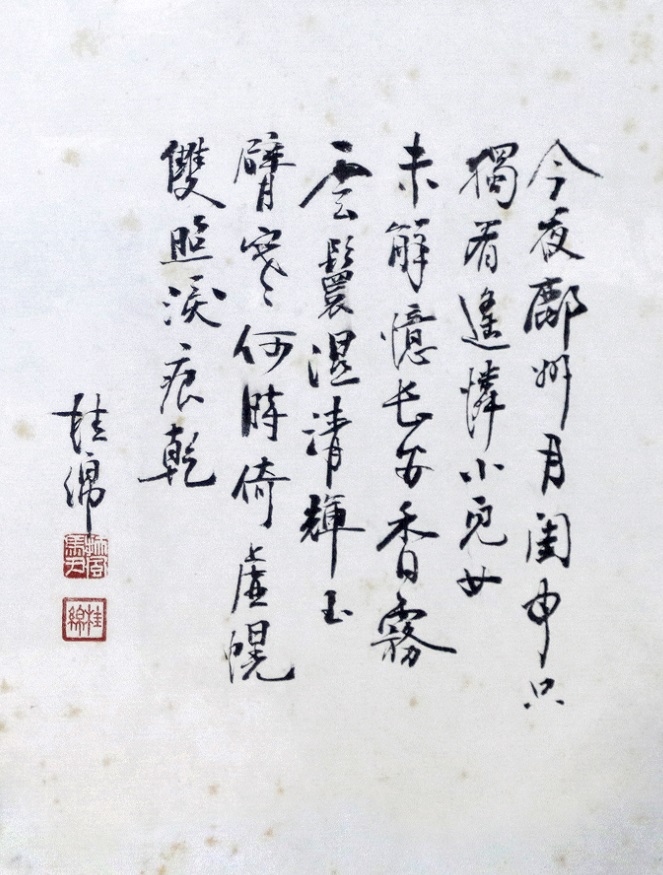 今夜鄜州月閨中只
獨看遙憐小兒女
未解憶長安香霧
雲鬟濕清輝玉
臂寒何時倚虛幌
雙照淚痕乾
桂綿